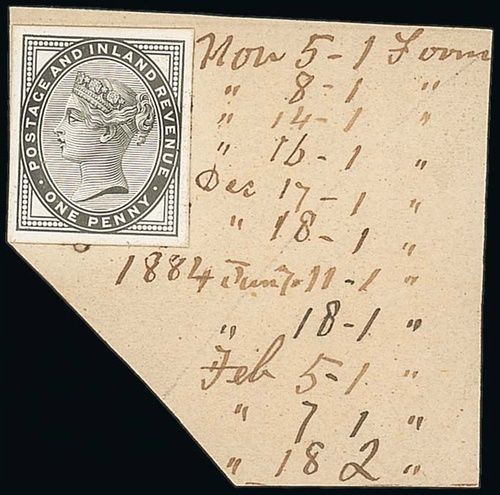 POSTAGE AND INLAND REVENUE
ONE PENNY
Nov 5 - 1 Form
" 8 - 1 "
" 14 - 1 "
" 16 - 1 "
Dec 17 - 1 "
" 18 - 1 "
1884 11 - 1 "
" 18 - 1 "
Feb 5 - 1 "
" 7 1 "
" 18 2 "